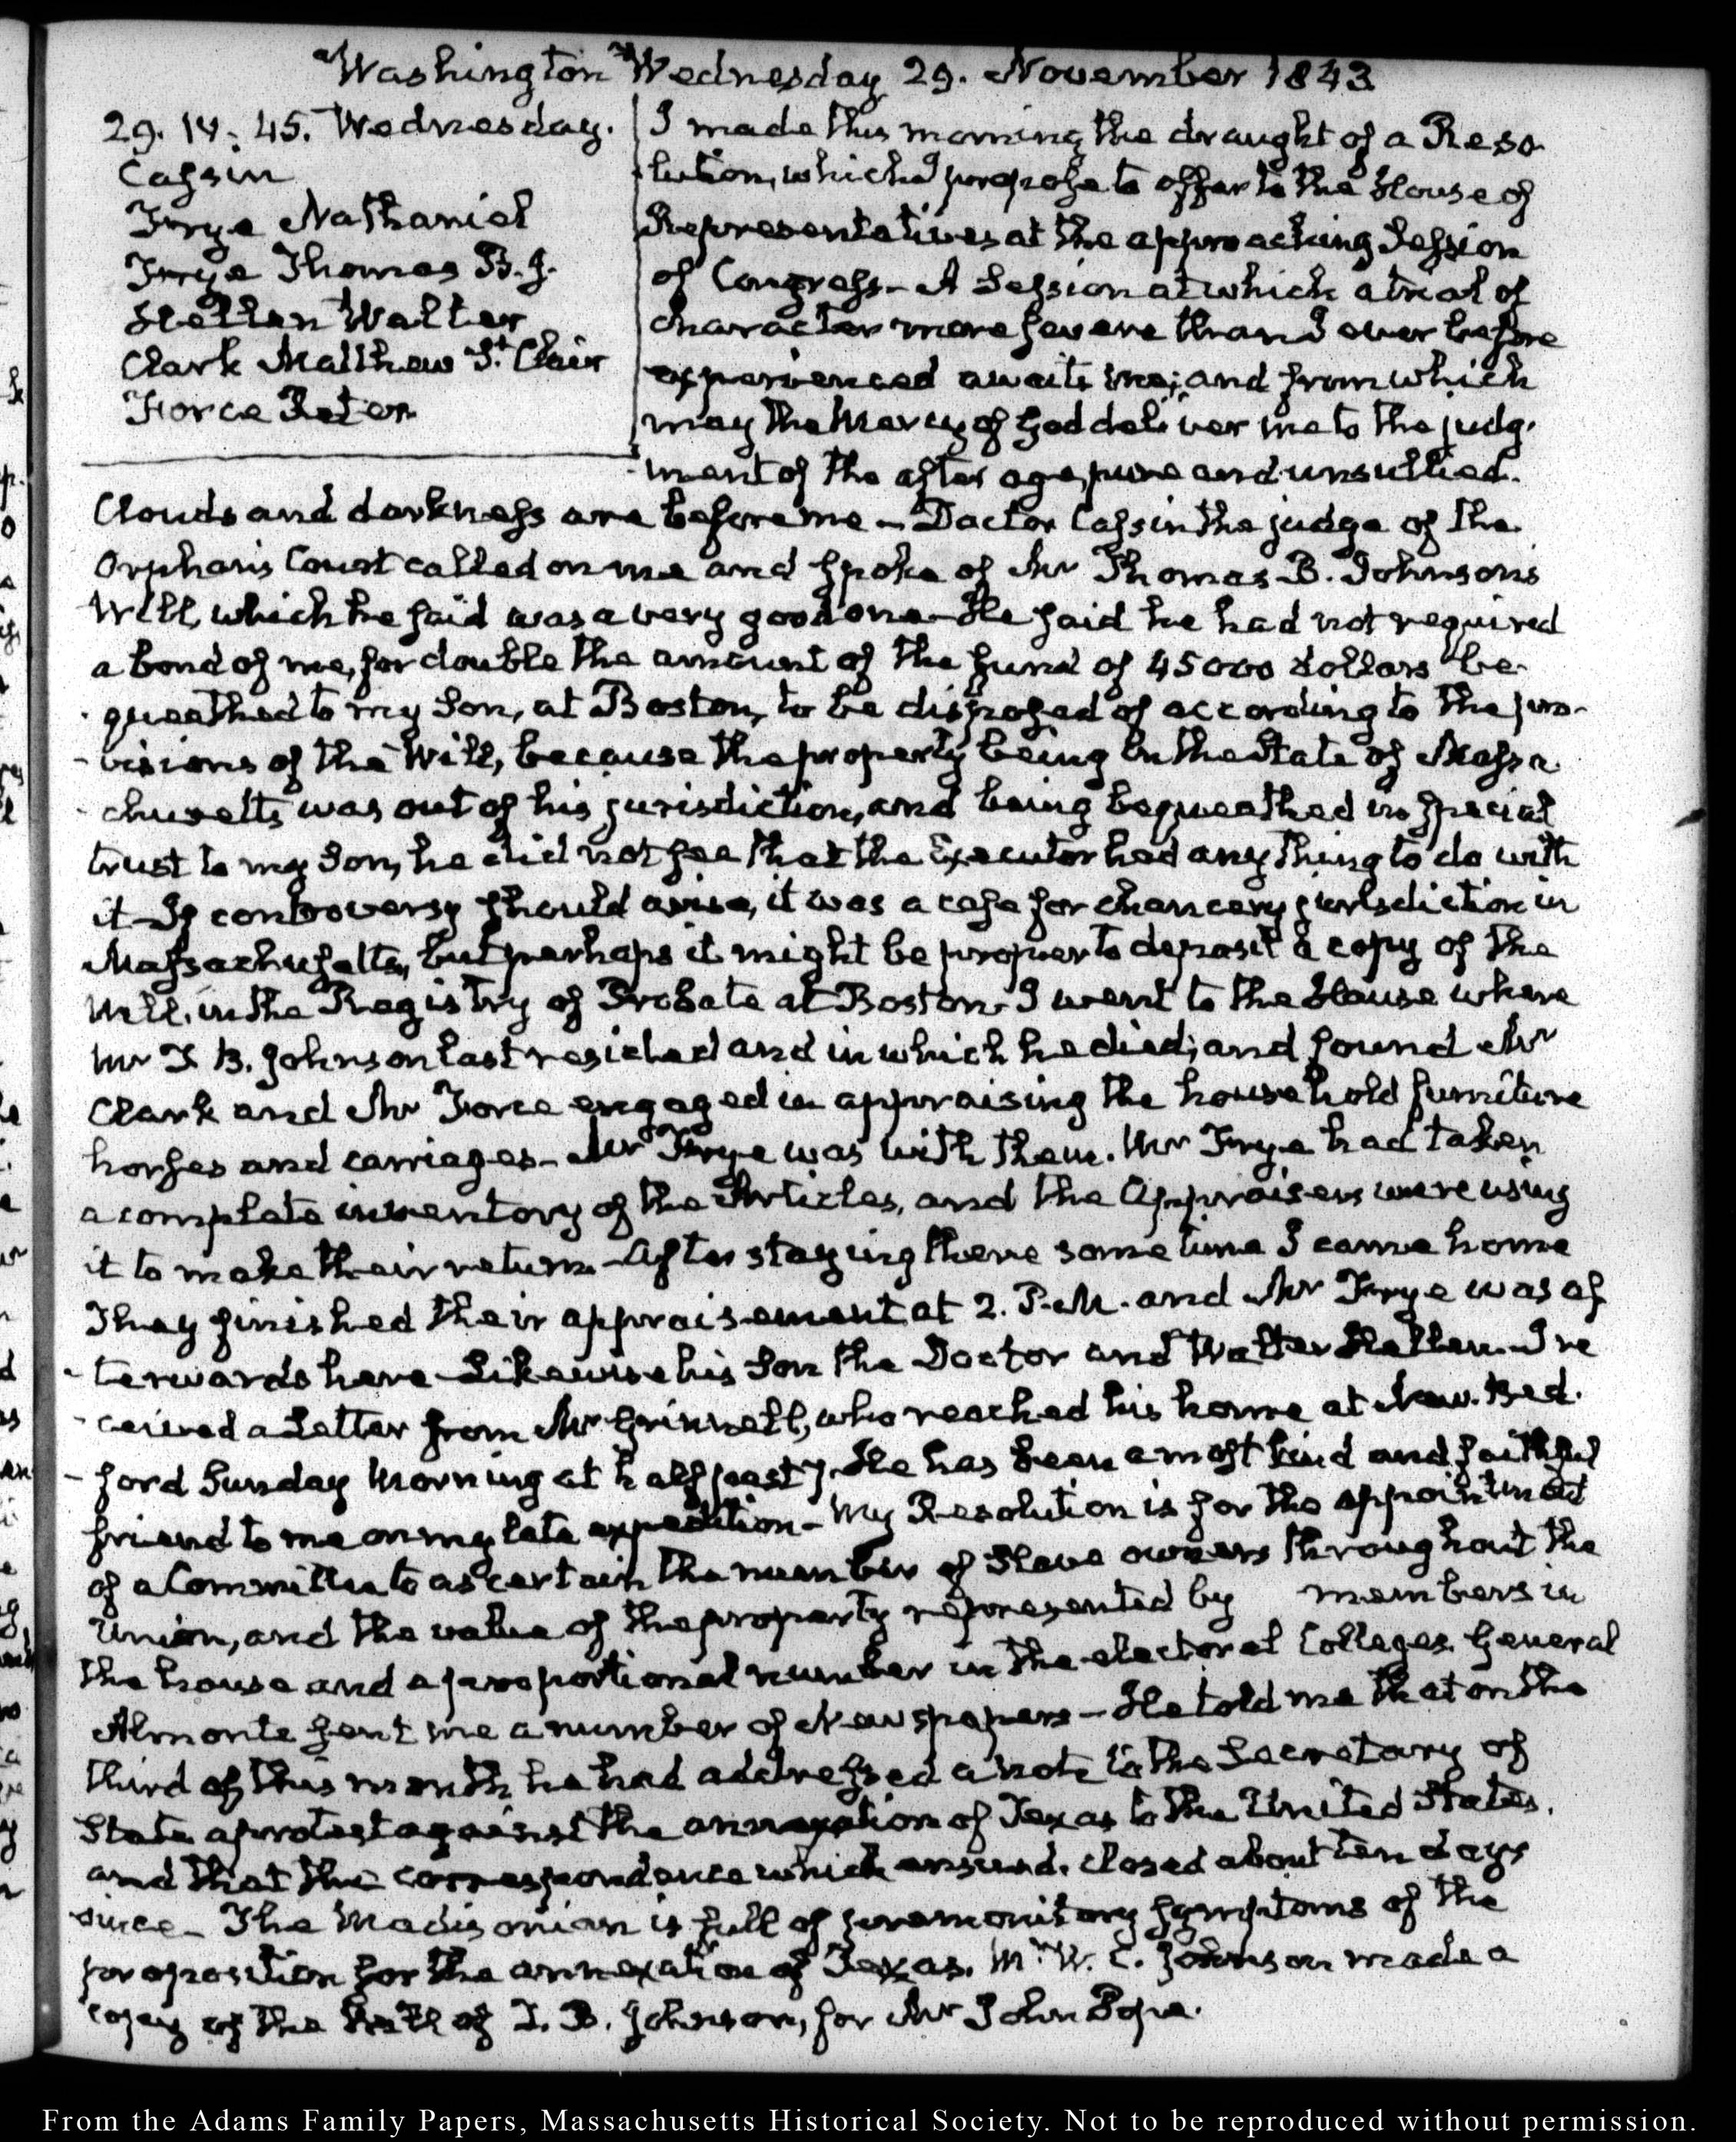 Washington Wednesday 29. November 1843
29. IV: 45. Wednesday.
Cassin
Frye Nathaniel
Frye Thomas B. J.
Hellen Walter
Clark Matthew St. Clair
Force Peter
I made this morning the draught of a Reso
-lution, which I propose to offer to the House of
Representatives at the approaching Session
of Congress— A Session at which a trial of
character more severe than I ever before
experienced awaits me; and from which
may the Mercy of God deliver me to the judg-
-ment of the after age, pure and unsullied.
Clouds and darkness are before me— Doctor Cassin the judge of the
Orphan's Court called on me and spoke of Mr Thomas B. Johnson's
Will, which he said was a very good one— He said he had not required
a bond of me, for double the amount of the fund of 45000 dollars be-
-queathed to my Son, at Boston, to be disposed of according to the pro-
-visions of the Will, because the property being in the State of Massa-
-chusetts was out of his jurisdiction, and being bequeathed in special
trust to my Son, he did not see that the Executor had any thing to do with
it— If controversy should arise, it was a case for chancery jurisdiction in
Massachusetts, but perhaps it might be proper to deposit a copy of the
Will, in the Registry of Probate at Boston— I went to the House where
Mr T. B. Johnson last resided and in which he died; and found Mr
Clark and Mr Force engaged in appraising the household furniture
horses and carriages— Mr Frye was with them. Mr Frye had taken
a complete inventory of the Articles, and the Appraisers were using
it to make their return— After staying there some time I came home
They finished their appraisement at 2. P.M. and Mr Frye was af
-terwards here— Likewise his Son the Doctor and Walter Hellen. I re
-ceived a Letter from Mr Grinnell, who reached his home at New-Bed-
-ford Sunday Morning at half past 7. He has been a most kind and faithful
friend to me on my late expedition— My Resolution is for the appointment
of a Committee to ascertain the number of Slave owners throughout the
Union, and the value of the property represented by members in
the house and a proportional number in the electoral Colleges. General
Almonte sent me a number of Newspapers— He told me that on the
third of this month he had addressed a note to the Secretary of
State a protest against the annexation of Texas to the United States,
and that the correspondence which ensued, closed about ten days
since— The Madisonian is full of premonitory symptoms of the
proposition for the annexation of Texas. Mr W. C. Johnson made a
copy of the Will of T. B. Johnson, for Mr John Pope.
From the Adams Family Papers, Massachusetts Historical Society. Not to be reproduced without permission.